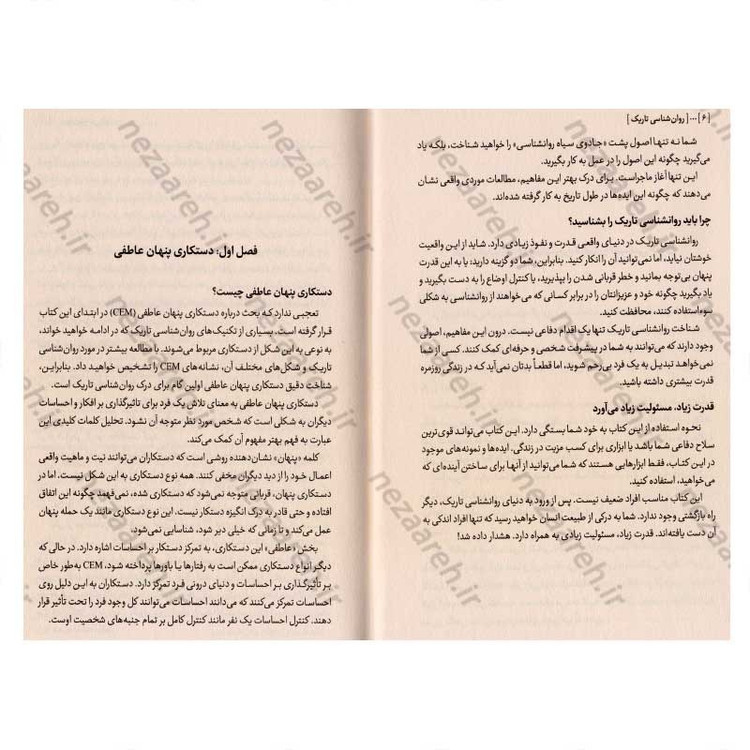 [ ۶ ] ... [ روان‌شناسی تاریک ]
شما نه تنها اصول پشت «جادوی سیاه روانشناسی» را خواهید شناخت، بلکه یاد
می‌گیرید چگونه این اصول را در عمل به کار بگیرید.
این تنها آغاز ماجراست. برای درک بهتر این مفاهیم، مطالعات موردی واقعی نشان
می‌دهند که چگونه این ایده‌ها در طول تاریخ به کار گرفته شده‌اند.
چرا باید روانشناسی تاریک را بشناسید؟
روانشناسی تاریک در دنیای واقعی قدرت و نفوذ زیادی دارد. شاید از این واقعیت
خوشتان نیاید، اما نمی‌توانید آن را انکار کنید. بنابراین، شما دو گزینه دارید: یا به این قدرت
پنهان بی‌توجه بمانید و خطر قربانی شدن را بپذیرید، یا کنترل اوضاع را به دست بگیرید و
یاد بگیرید چگونه خود و عزیزانتان را در برابر کسانی که می‌خواهند از روانشناسی به شکلی
سوءاستفاده کنند، محافظت کنید.
شناخت روانشناسی تاریک تنها یک اقدام دفاعی نیست. درون این مفاهیم، اصولی
وجود دارند که می‌توانند به شما در پیشرفت شخصی و حرفه‌ای کمک کنند. کسی از شما
نمی‌خواهد تبدیل به یک فرد بی‌رحم شوید، اما قطعاً بدتان نمی‌آید که در زندگی روزمره
قدرت بیشتری داشته باشید.
قدرت زیاد، مسئولیت زیاد می‌آورد
نحوه استفاده از این کتاب به خود شما بستگی دارد. این کتاب می‌تواند قوی‌ترین
سلاح دفاعی شما باشد یا ابزاری برای کسب مزیت در زندگی. ایده‌ها و نمونه‌های موجود
در این کتاب، فقط ابزارهایی هستند که شما می‌توانید از آنها برای ساختن آینده‌ای که
می‌خواهید، استفاده کنید.
این کتاب مناسب افراد ضعیف نیست. پس از ورود به دنیای روانشناسی تاریک، دیگر
راه بازگشتی وجود ندارد. شما به درکی از طبیعت انسان خواهید رسید که تنها افراد اندکی به
آن دست یافته‌اند. قدرت زیاد، مسئولیت زیادی به همراه دارد. هشدار داده شد!
فصل اول: دستکاری پنهان عاطفی
دستکاری پنهان عاطفی چیست؟
تعجبی ندارد که بحث درباره دستکاری پنهان عاطفی (CEM) در ابتدای این کتاب
قرار گرفته است. بسیاری از تکنیک‌های روان‌شناسی تاریک که در ادامه خواهید خواند،
به نوعی به این شکل از دستکاری مربوط می‌شوند. با مطالعه بیشتر در مورد روان‌شناسی
تاریک و شکل‌های مختلف آن، نشانه‌های CEM را تشخیص خواهید داد. بنابراین،
شناخت دقیق دستکاری پنهان عاطفی اولین گام برای درک روان‌شناسی تاریک است.
دستکاری پنهان عاطفی به معنای تلاش یک فرد برای تاثیرگذاری بر افکار و احساسات
دیگران به شکلی است که شخص مورد نظر متوجه آن نشود. تحلیل کلمات کلیدی این
عبارت به فهم بهتر مفهوم آن کمک می‌کند.
کلمه «پنهان» نشان‌دهنده روشی است که دستکاران می‌توانند نیت و ماهیت واقعی
اعمال خود را از دید دیگران مخفی کنند. همه نوع دستکاری به این شکل نیست. اما در
دستکاری پنهان، قربانی متوجه نمی‌شود که دستکاری شده، نمی‌فهمد چگونه این اتفاق
افتاده و حتی قادر به درک انگیزه دستکار نیست. این نوع دستکاری مانند یک حمله پنهان
عمل می‌کند و تا زمانی که خیلی دیر شود، شناسایی نمی‌شود.
بخش «عاطفی» این دستکاری، به تمرکز دستکار بر احساسات اشاره دارد. در حالی که
دیگر انواع دستکاری ممکن است به رفتارها یا باورها پرداخته شود، CEM به‌طور خاص
بر تأثیرگذاری بر احساسات و دنیای درونی فرد تمرکز دارد. دستکاران به این دلیل روی
احساسات تمرکز می‌کنند که می‌دانند احساسات می‌توانند کل وجود فرد را تحت تأثیر قرار
دهند. کنترل احساسات یک نفر مانند کنترل کامل بر تمام جنبه‌های شخصیت اوست.
nezaareh.ir
nezaareh.ir
nezaareh.ir
nezaareh.ir
nezaareh.ir
nezaareh.ir
nezaareh.ir
nezaareh.ir